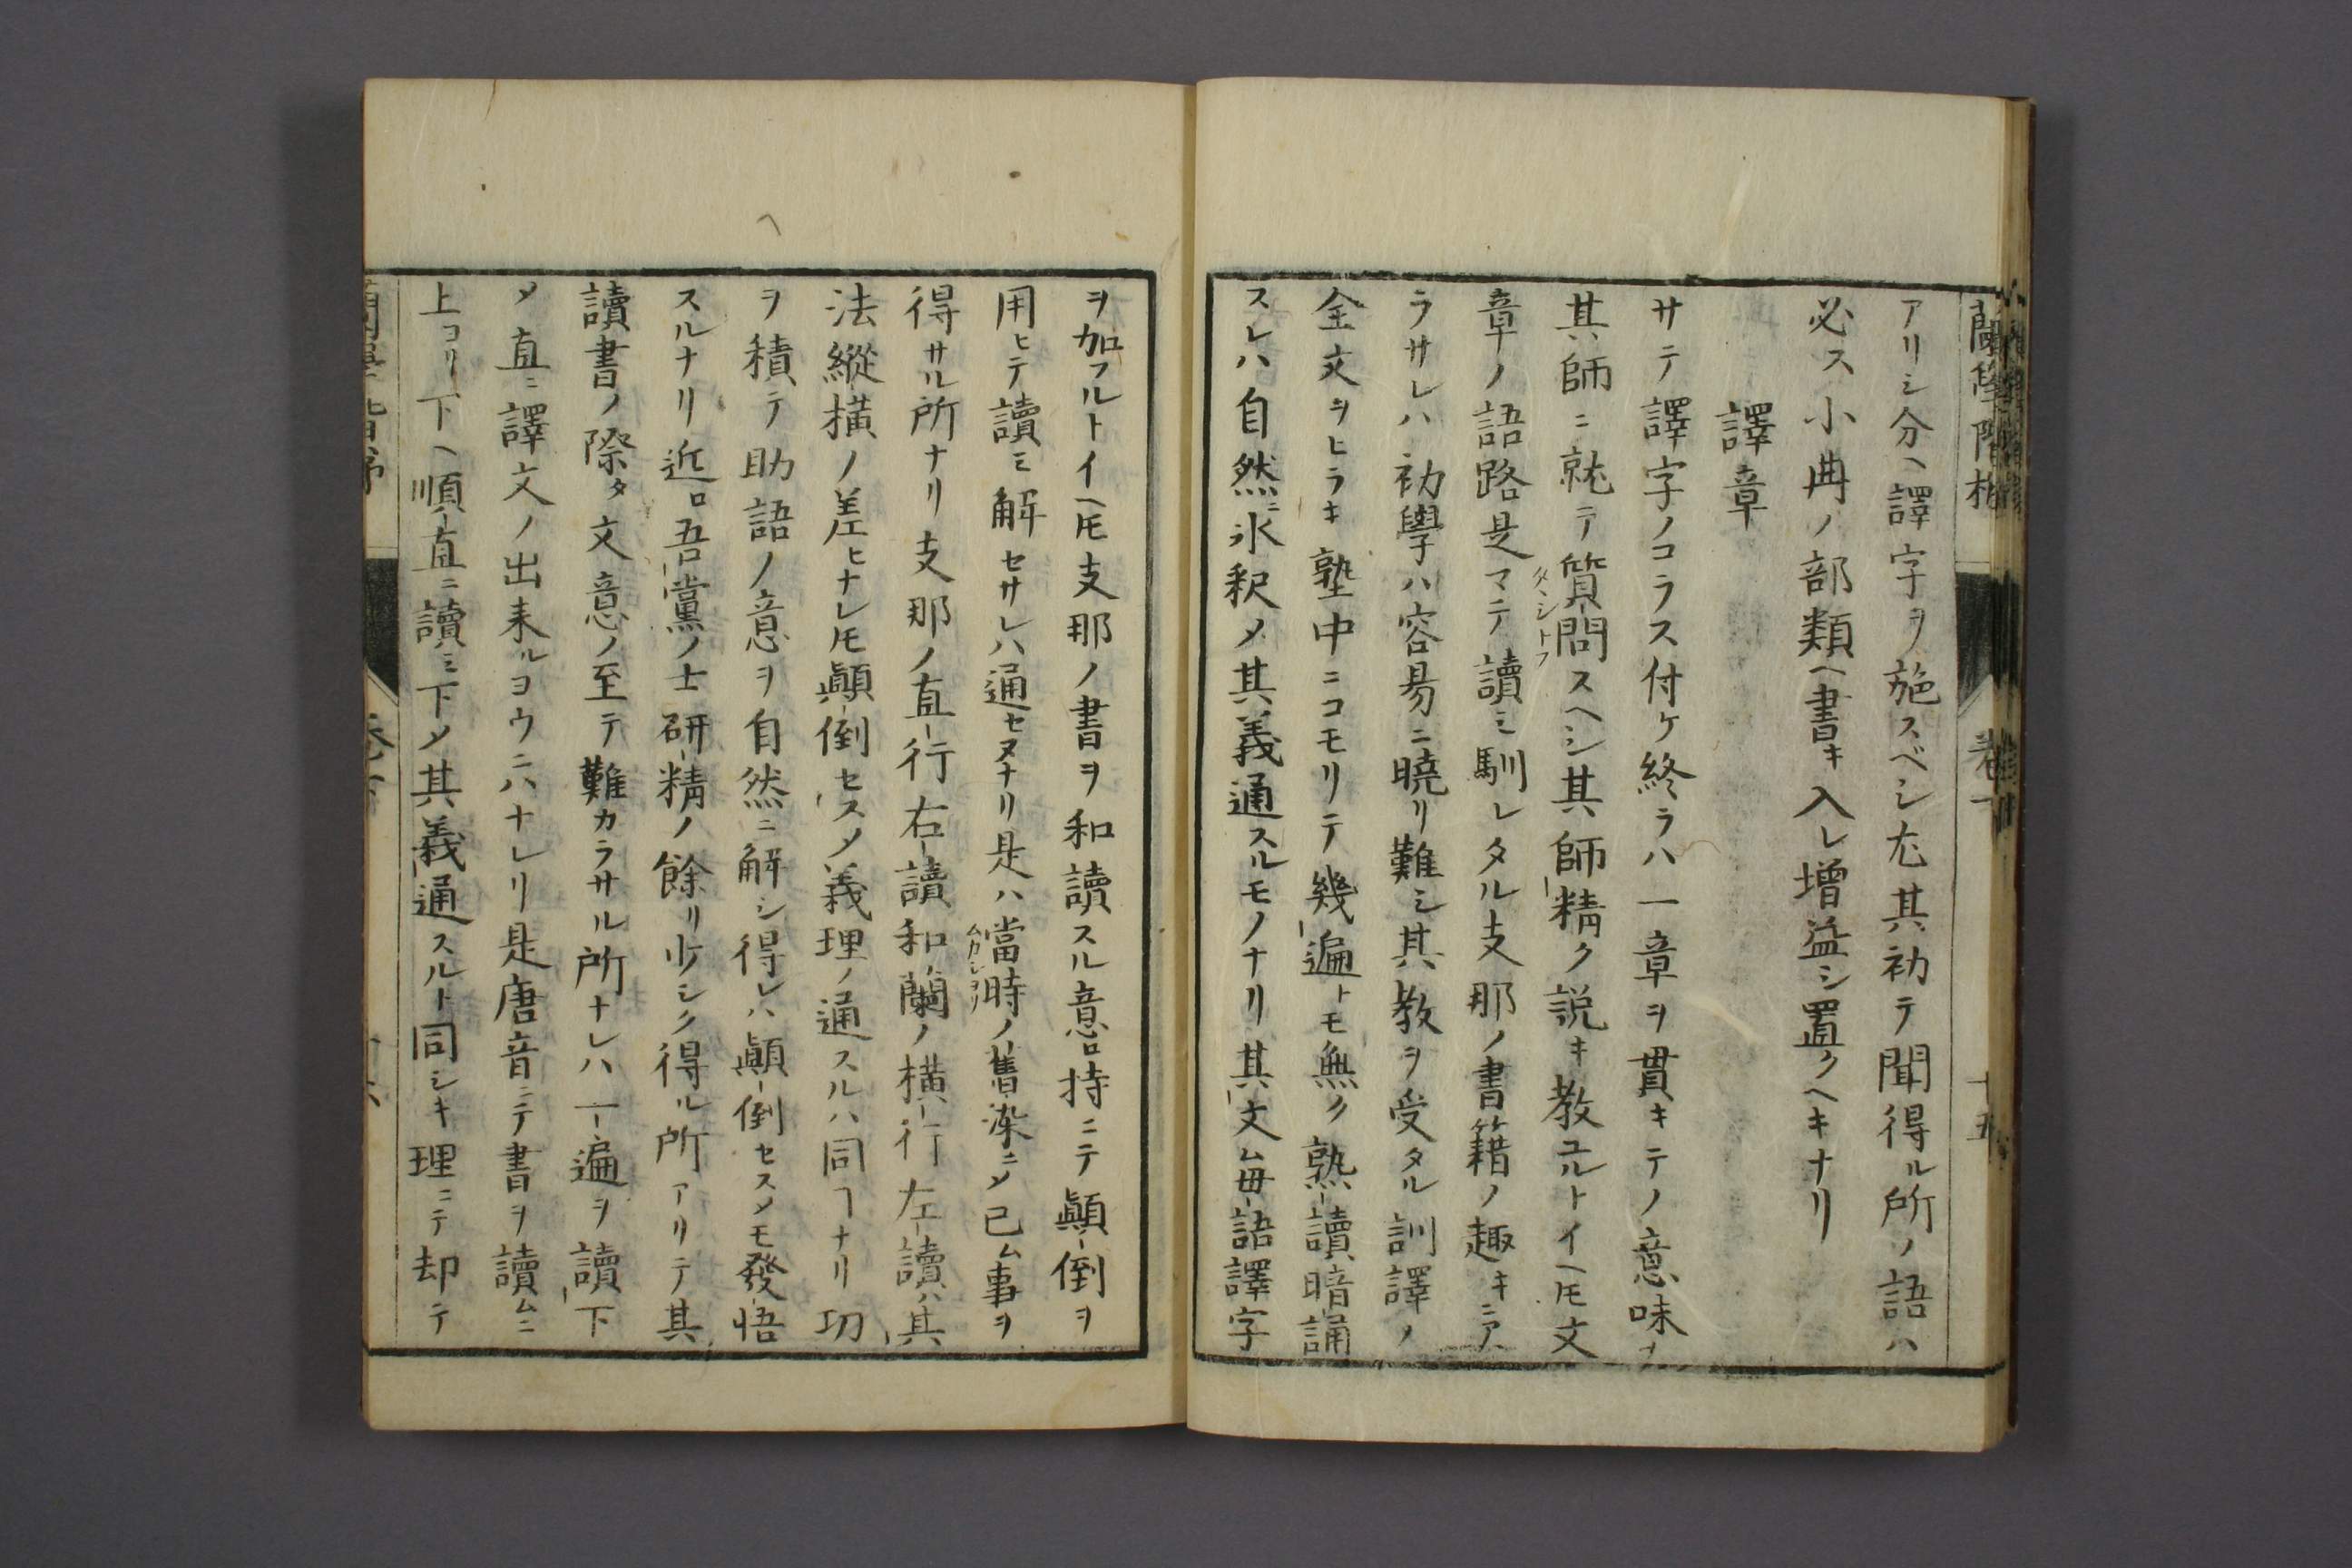 アリシ分ヘ譯字ヲ施スベシ尤其初テ聞得ル所ノ語ハ
必ス小典ノ部類ヘ書キ入レ増益シ置クヘキナリ
譯章
サテ譯字ノコラス付ケ終ラハ一章ヲ貫キテノ意味ヲ
其師ニ就テ質問スヘシ其師精ク説キ教ユルトイヘ𪜈文
タヽシトフ
章ノ語路是マテ讀ミ馴レタル支那ノ書籍ノ趣キニア
ラサレハ初學ハ容易ニ曉リ難シ其教ヲ受タル訓譯ノ
全文ヲヒラキ塾中ニコモリテ幾遍トモ無ク熟讀暗誦
スレハ自然ニ氷釈〆其義通スルモノナリ其文毎語譯字
ヲ加フルトイヘ𪜈支那ノ書ヲ和讀スル意口持ニテ顚倒ヲ
用ヒテ讀ミ解セサレハ通セヌナリ是ハ當時ノ舊染ニ〆已ム事ヲ
ムカシヨリ
得サル所ナリ支那ノ直行右讀和蘭ノ横行左讀ハ其
法縱横ノ差ヒナレ𪜈顚倒セス〆義理ノ通スルハ同ヿナリ功
ヲ積テ助語ノ意ヲ自然ニ解シ得レハ顚倒セス〆モ發悟
スルナリ近ロ吾黨ノ士研精ノ餘リ少シク得ル所アリテ其
讀書ノ際タ文意ノ至テ難カラサル所ナレハ一遍ヲ讀下
〆直ニ譯文ノ出来ルヨウニハナレリ是唐音ニテ書ヲ讀ムニ
上ヨリ下ヘ順直ニ讀ミ下〆其義通スルト同シキ理ニテ却テ